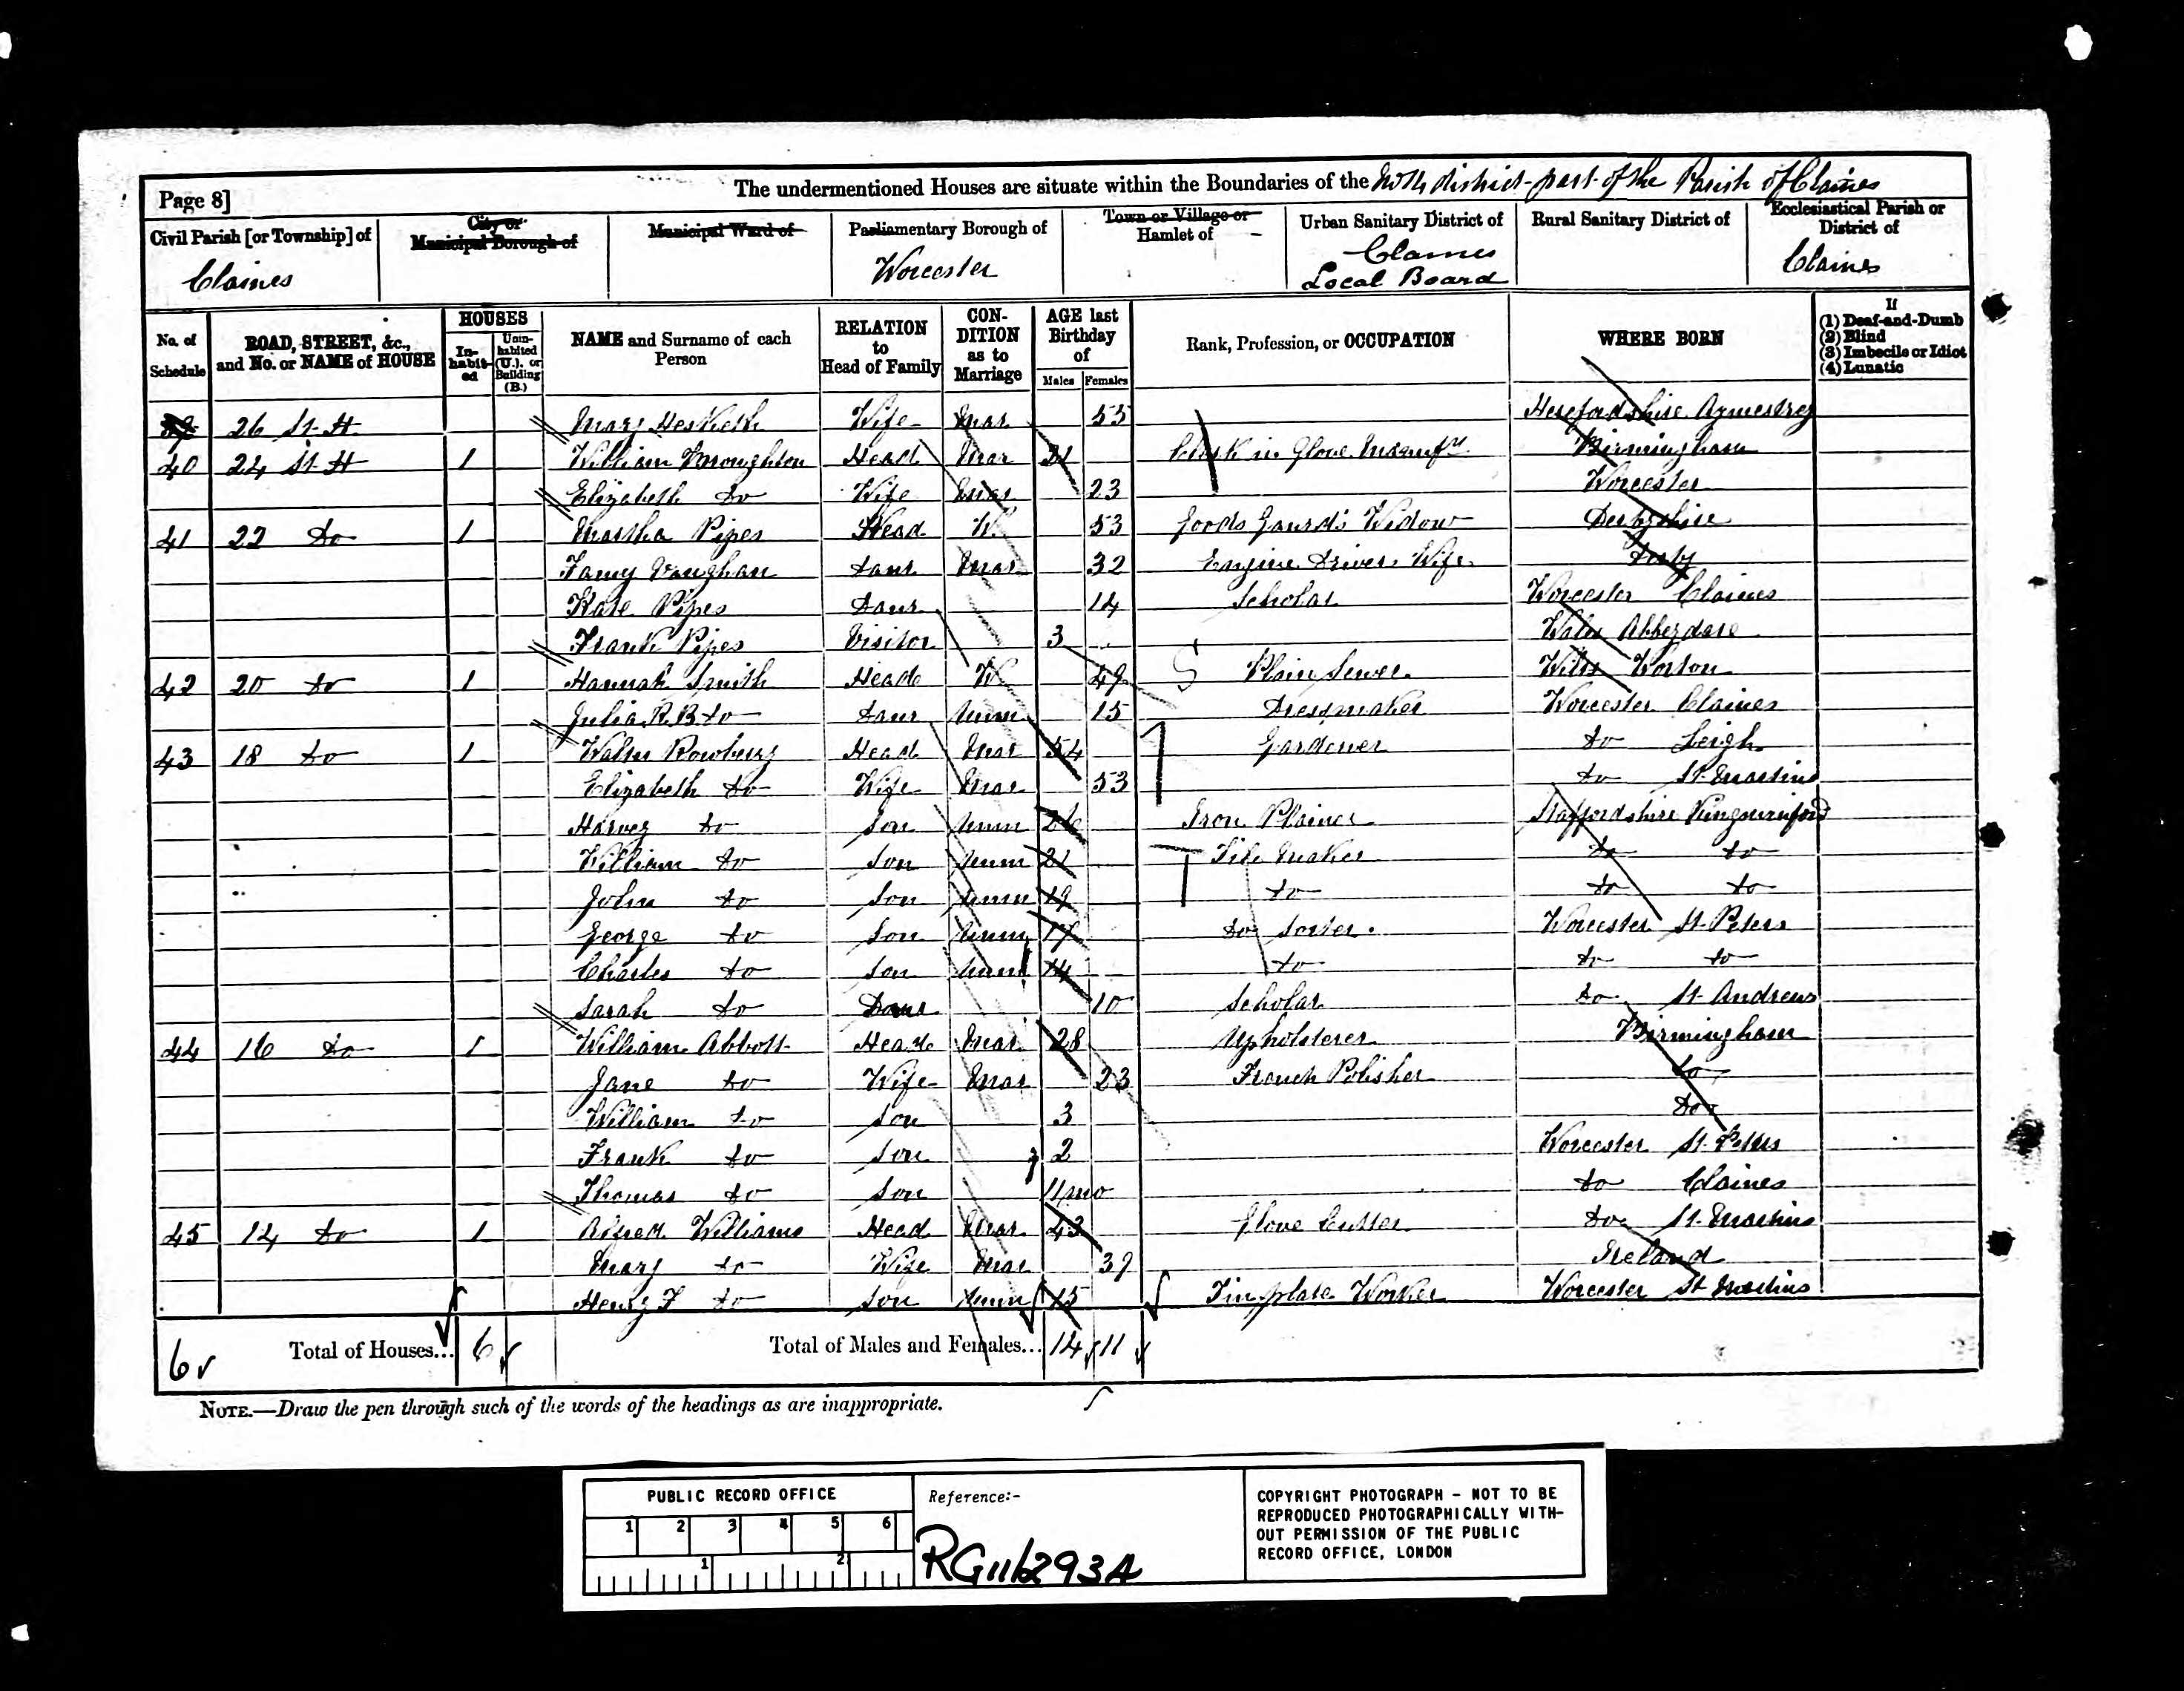 Page 8]
The undermentioned Houses are situate within the Boundaries of the North district part of the Parish of Claines
Civil Parish [or Township] of
Claines
City or
Municipal Borough of
Municipal Ward of
Parliamentary Borough of
Worcester
Town or Village or
Hamlet of
Urban Sanitary District of
Claines
Local Board
Rural Sanitary District of
Ecclesiastical Parish or
District of
Claines
No. of
Schedule
ROAD, STREET, &c.,
and No. or NAME of HOUSE
HOUSES
In-
habit-
ed
Unin-
habited
(U.), or
Building
(B.)
NAME and Surname of each
Person
RELATION
to
Head of Family
CON-
DITION
as to
Marriage
AGE last
Birthday
of
Males Females
Rank, Profession, or OCCUPATION
WHERE BORN
If
(1) Deaf-and-Dumb
(2) Blind
(3) Imbecile or Idiot
(4) Lunatic
26 St. H. Mary Hesketh Wife Mar 55 Herefordshire Aymestrey
40 24 St. H 1 William Broughton Head Mar 21 Clerk in Glove Manufy Birmingham
Elizabeth do Wife Mar 23 Worcester
41 22 do 1 Martha Pipes Head W. 53 Goods Gaurds Widow Derbyshire
Fanny Vaughan Daur Mar 32 Engine Drivers Wife Derby
Kate Pipes Daur 14 Scholar Worcester Claines
Frank Pipes Visitor 3 Wales Abberdare
42 20 do 1 Hannah Smith Head W 49 Plain Sewer Wilts Worton
Julia R. B. do Daur Unm 15 Dressmaker Worcester Claines
43 18 do 1 Walter Rowberry Head Mar 54 Gardener do Leigh
Elizabeth do Wife Mar 53 do St. Martins
Harvey do Son Unm 26 Iron Plainer Staffordshire Kingswinford
William do Son Unm 21 Tile Maker do do
John do Son Unm 19 do do do
George do Son Unm 17 do Sorter Worcester St. Peters
Charles do Son Unm 14 do do do
Sarah do Daur 10 Scholar do St. Andrews
44 16 do 1 William Abbott Head Mar 28 Upholsterer Birmingham
Jane do Wife Mar 23 French Polisher do
William do Son 3 do
Frank do Son 2 Worcester St. Peters
Thomas do Son 11 mo do Claines
45 14 do 1 Alfred Williams Head Mar 43 Glove Cutter do St. Martins
Mary do Wife Mar 39 Ireland
Henry F do Son Unm 15 Tinplate Worker Worcester St Martins
6 Total of Houses... 6 Total of Males and Females... 14 11
NOTE.—Draw the pen through such of the words of the headings as are inappropriate.
PUBLIC RECORD OFFICE
1 2 3 4 5 6
1 2
Reference:-
RG11/2934
COPYRIGHT PHOTOGRAPH - NOT TO BE
REPRODUCED PHOTOGRAPHICALLY WITH-
OUT PERMISSION OF THE PUBLIC
RECORD OFFICE, LONDON